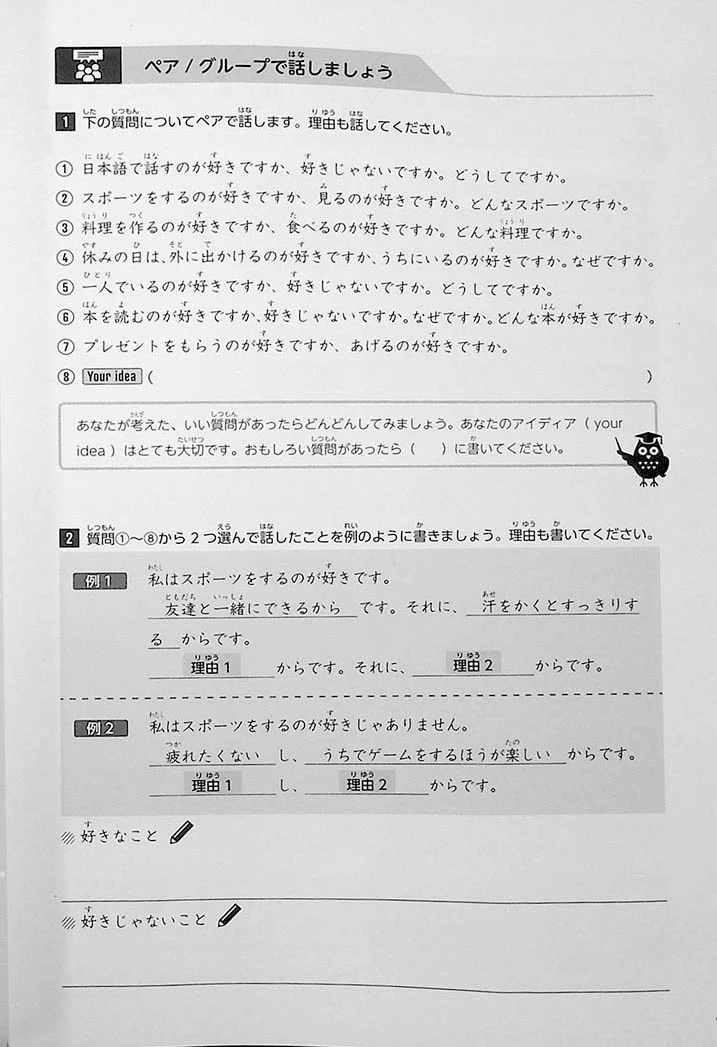 ペア / グループで話しましょう
1 下の質問についてペアで話します。理由も話してください。
① 日本語で話すのが好きですか、好きじゃないですか。どうしてですか。
② スポーツをするのが好きですか、見るのが好きですか。どんなスポーツですか。
③ 料理を作るのが好きですか、食べるのが好きですか。どんな料理ですか。
④ 休みの日は、外に出かけるのが好きですか、うちにいるのが好きですか。なぜですか。
⑤ 一人でいるのが好きですか、好きじゃないですか。どうしてですか。
⑥ 本を読むのが好きですか、好きじゃないですか。なぜですか。どんな本が好きですか。
⑦ プレゼントをもらうのが好きですか、あげるのが好きですか。
⑧ Your idea ( )
あなたが考えた、いい質問があったらどんどんしてみましょう。あなたのアイディア（your
idea）はとても大切です。おもしろい質問があったら（　）に書いてください。
2 質問①～⑧から2つ選んで話したことを例のように書きましょう。理由も書いてください。
例1 私はスポーツをするのが好きです。
友達と一緒にできるから です。それに、 汗をかくとすっきりす
る からです。
理由1 からです。それに、 理由2 からです。
例2 私はスポーツをするのが好きじゃありません。
疲れたくない し、 うちでゲームをするほうが楽しい からです。
理由1 し、 理由2 からです。
好きなこと
好きじゃないこと